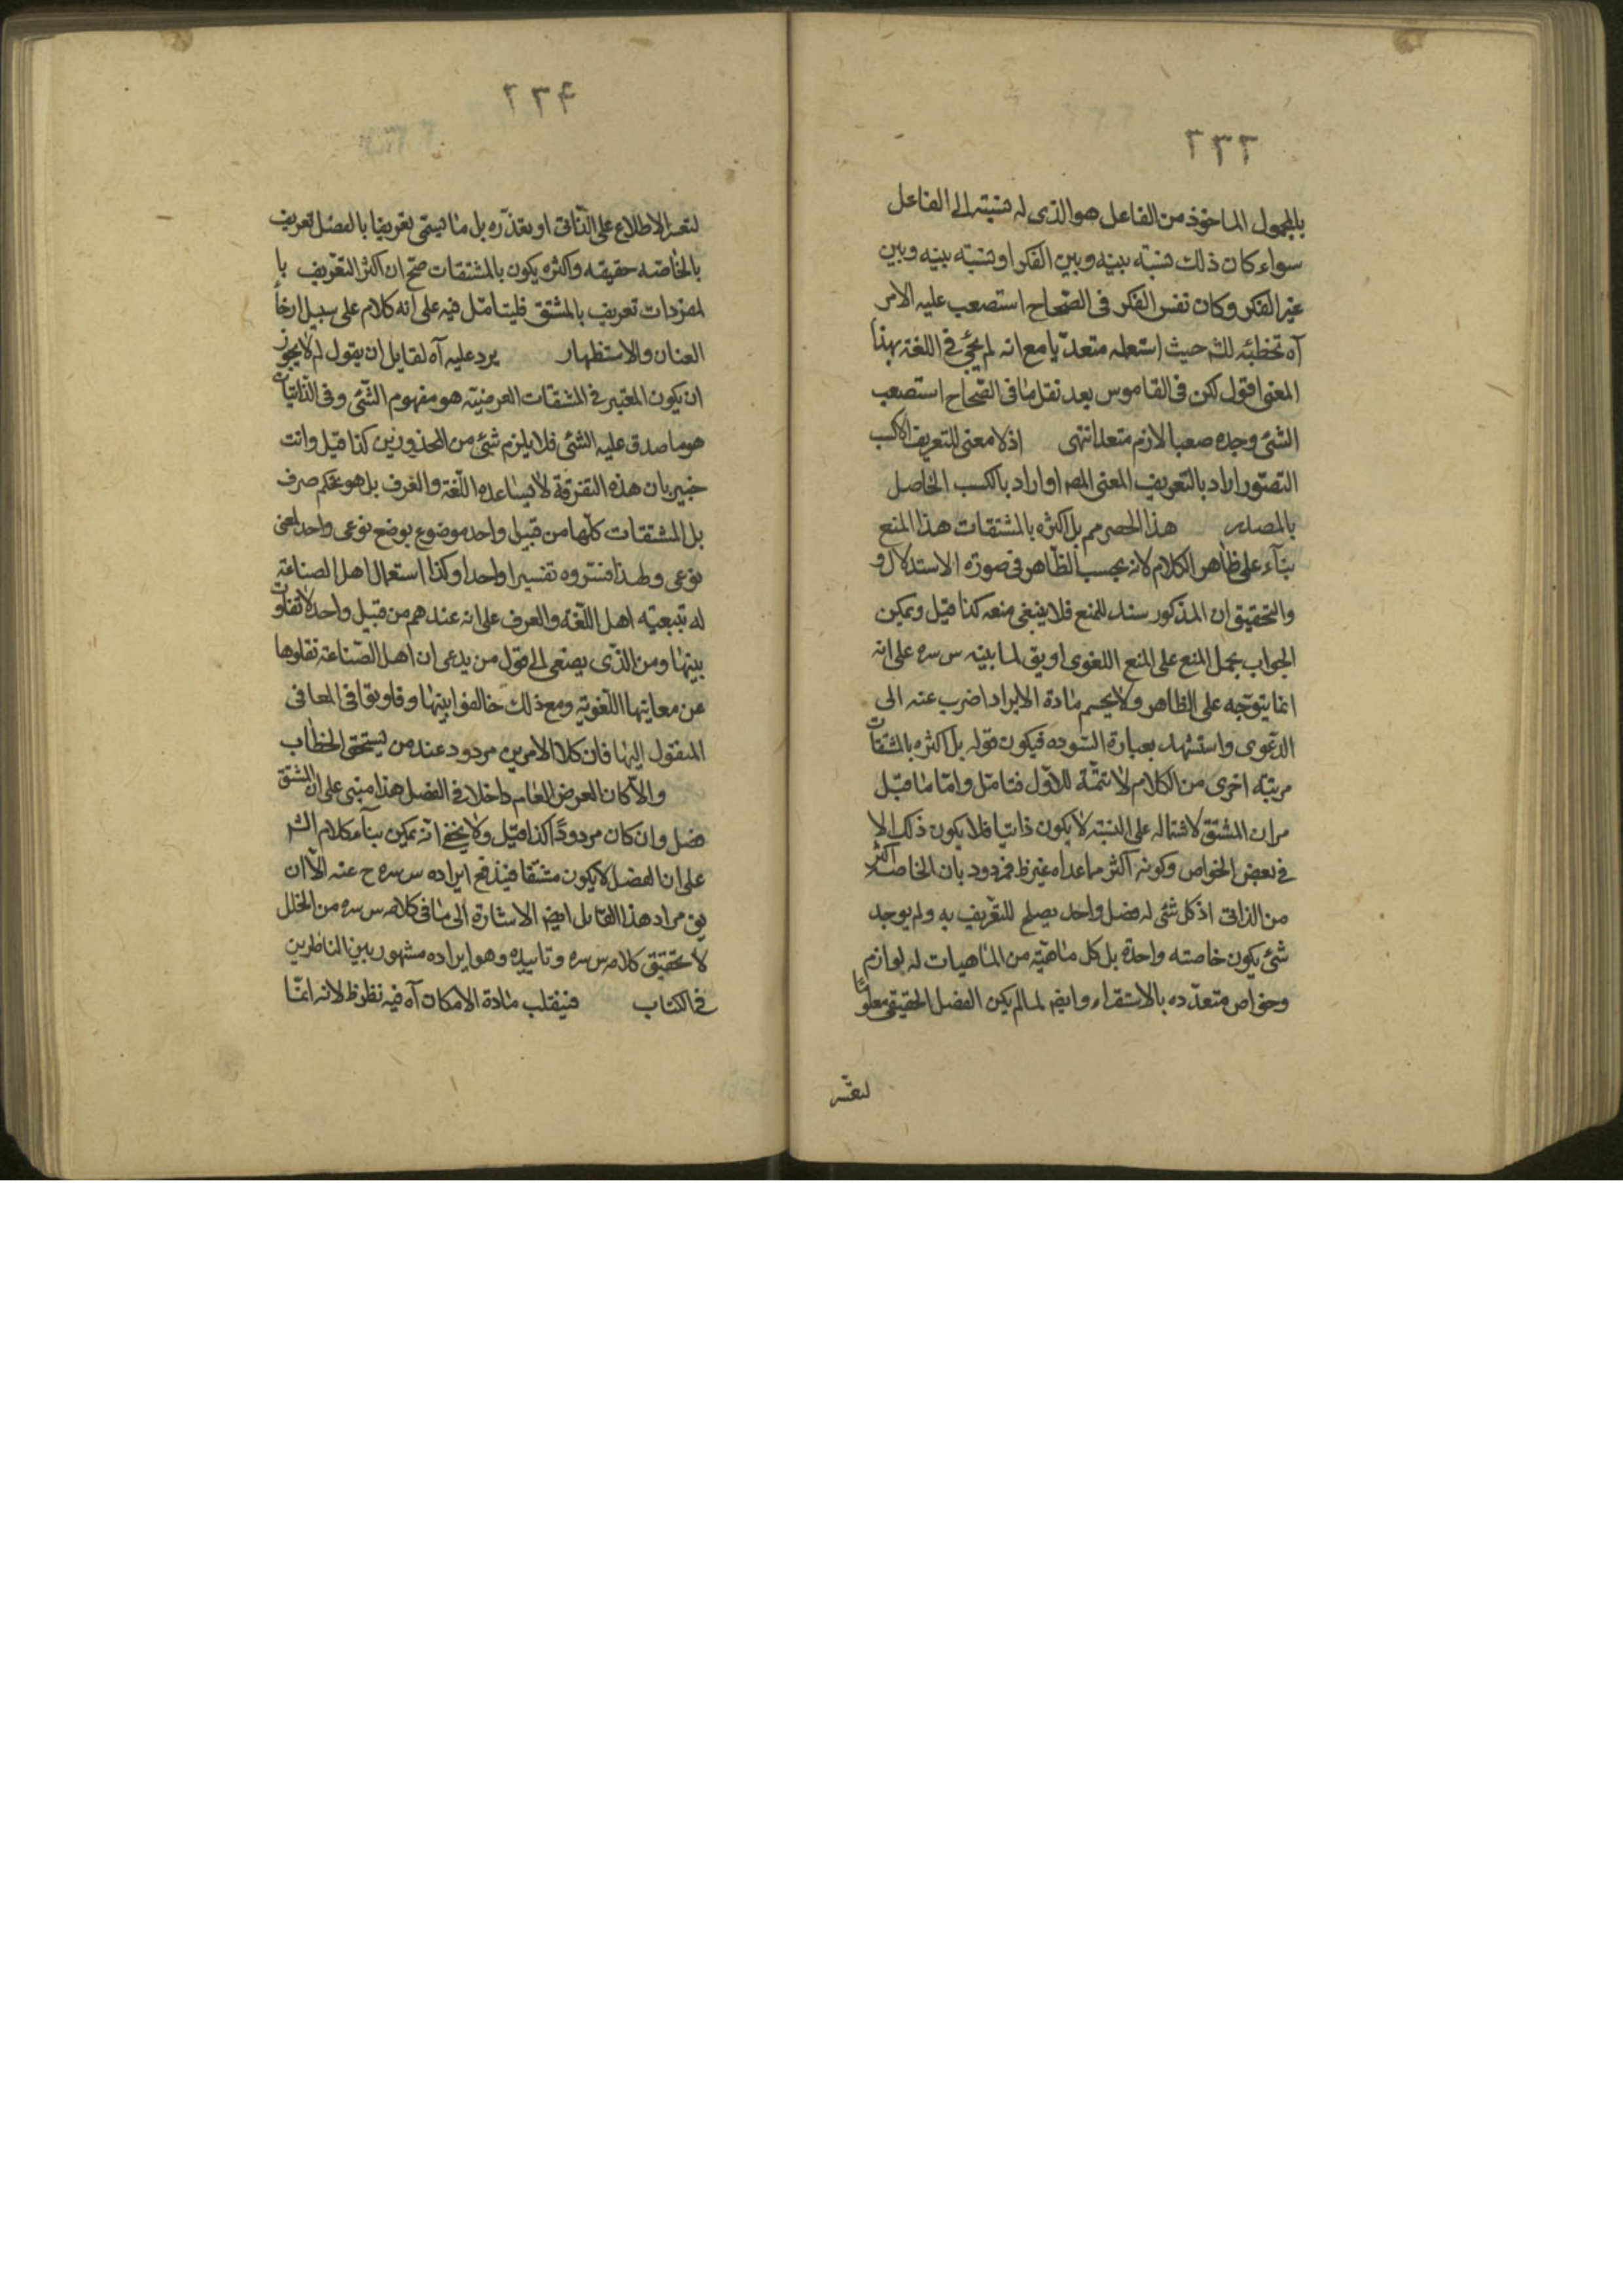 ٢٣٣
بالمحمول الماخوذ من الفاعل هو الذى له نسبته الى الفاعل
سواء كان ذلك نسبته بينه وبين الفكر او نسبته بينه وبين
غير الفكر وكان نفس الفكر فى الصحاح استصعب عليه الامر
آه تخطئه للش حيث استعمله متعديا مع انه لم يجئ فى اللغة بهذا
المعنى اقول لكن فى القاموس بعد نقل ما فى الصحاح استصعب
الشئ وجده صعبا لازم متعد انتهى اذ لا معنى للتعريف الا كسب
التصور اراد بالتعريف المعنى المص او اراد بالكسب الحاصل
بالمصدر هذا الحصر مم بل اكثره بالمشتقات هذا المنع
بناء على ظاهر الكلام لانه بحسب الظاهر فى صورة الاستدلال و
والتحقيق ان المذكور سند للمنع فلا ينبغى منعه كذا قيل ويمكن
الجواب بحمل المنع على المنع اللغوى او يق لما بينه س سره على انه
انما يتوجه على الظاهر ولا يحسم مادة الايراد اضرب عنه الى
الدعوى واستشهد بعبارة السوده فيكون قوله بل اكثره بالمشتقات
مرتبة اخرى من الكلام لا تتمة للاول فتامل واما ما قيل
مر ان المشتق لاشتماله على النسبته لا يكون ذاتيا فلا يكون ذلك الا
فى بعض الخواص وكونه اكثر مما عداه غير ظ فمردود بان الخاصه اكثر
من الذاتى اذ كل شئ له فصل واحد يصلح للتعريف به ولم يوجد
شئ يكون خاصته واحدة بل كل ماهيته من الماهيات له لوازم
وخواص متعدده بالاستقراء وايضا لما لم يكن الفصل الحقيقى معلوما
لتعسر
٢٣٤
لتعسر الاطلاع على الذاتى او تعذره بل ما يسمى تعريفا بالفصل تعريف
بالخاصه حقيقه واكثره يكون بالمشتقات صح ان اكثر التعريف با
لمفردات تعريف بالمشتق فليتامل فيه على انه كلام على سبيل ارخاء
العنان والاستظهار يرد عليه آه لقايل ان يقول لم لا يجوز
ان يكون المعتبر فى المشتقات العرضيته هو مفهوم الشئ وفى الذاتيات
هو ما صدق عليه الشئ فلا يلزم شئ من المحذورين كذا قيل وانت
خبير بان هذه التفرقة لا يساعده اللغة والعرف بل هو تحكم صرف
بل المشتقات كلها من قبيل واحد موضوع بوضع نوعى واحد لمعنى
نوعى ولهذا فسروه تفسيرا واحدا وكذا استعمال اهل الصناعة
له تبعيته اهل اللغة والعرف على انه عندهم من قبيل واحد لا تفاوت
بينها ومن الذى يصغى الى قول من يدعى ان اهل الصناعة نقلوها
عن معانيها اللغويه ومع ذلك خالفوا بينها وفاوتوا فى المعانى
المنقول اليها فان كلا الامرين مردود عند من يستحق الخطاب
والا كان العرض العام داخلا فى الفصل هذا مبنى على ان المشتق
فصل وان كان مردودا كذا قيل ولا يخفى انه يمكن بناء كلام الش
على ان الفصل لا يكون مشتقا فيندفع ايراده س سره ح عنه الا ان
يق مراد هذا القايل ايض الاشارة الى ما فى كلام س سره من الخلل
لا تحقيق كلام س سره وتاييده وهو ايراده مشهور بين الناظرين
فى الكتاب فينقلب مادة الامكان آه فيه نظر ظ لانه انما